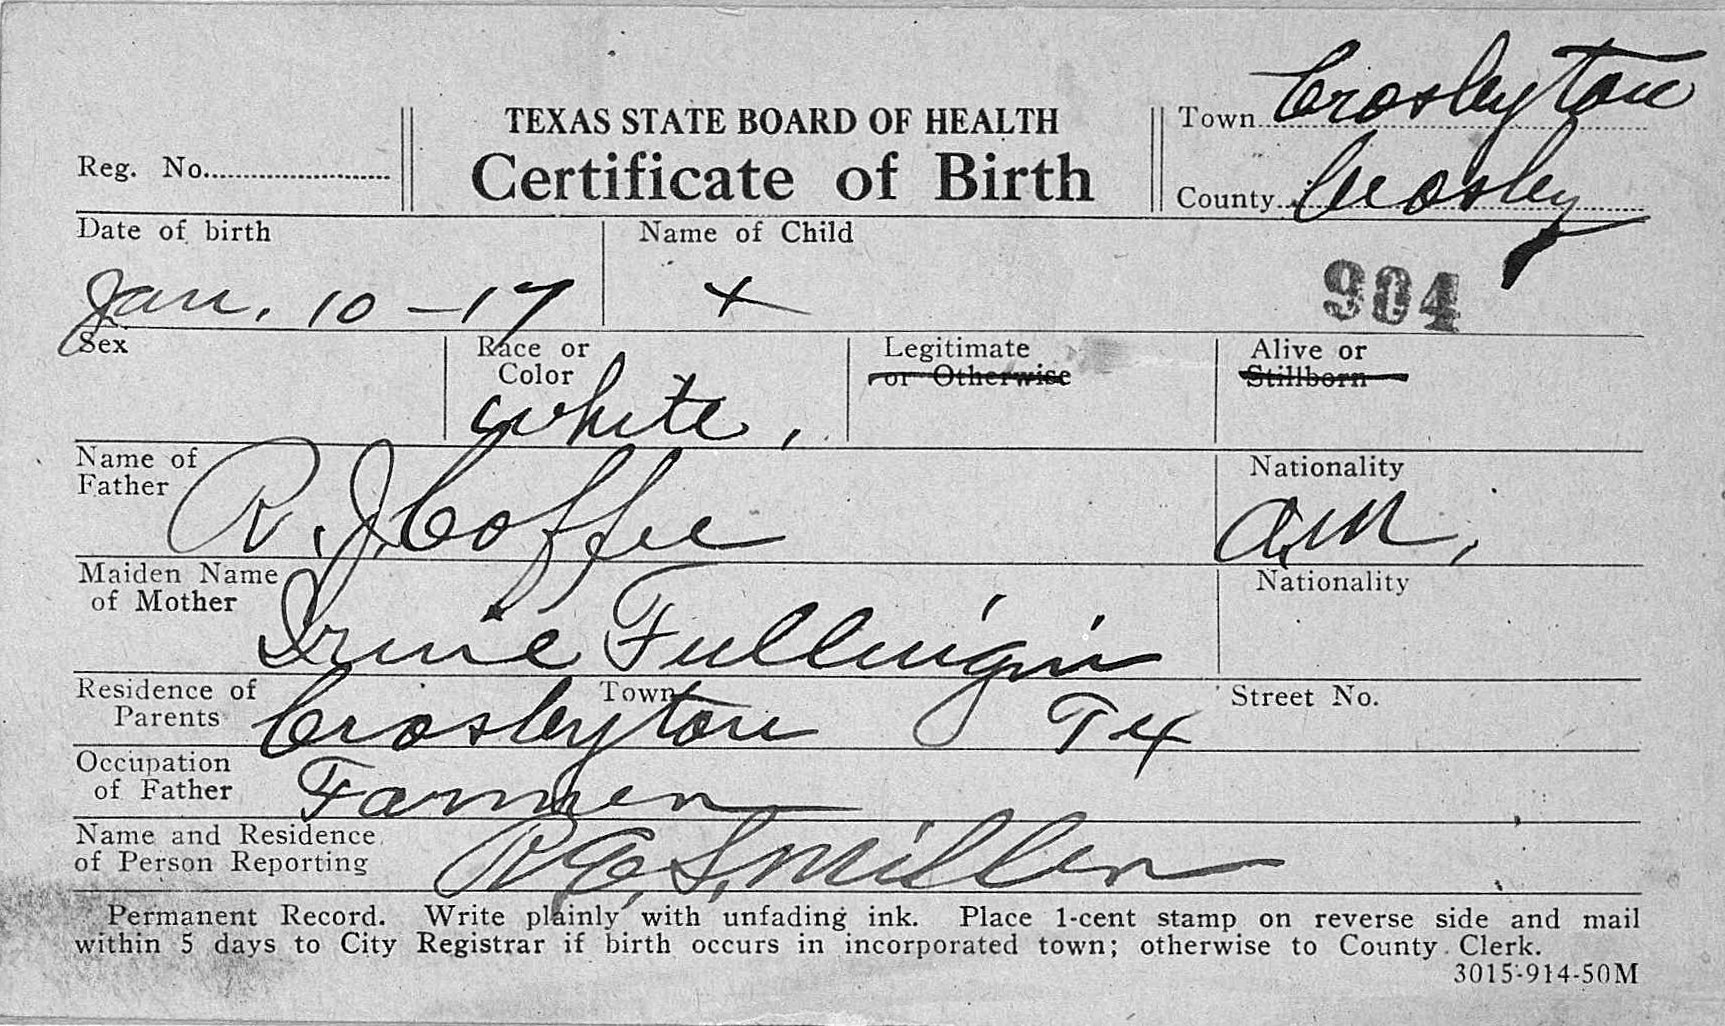 TEXAS STATE BOARD OF HEALTH
Certificate of Birth
Reg. No.
Town Crosbyton
County Crosby
Date of birth
Jan. 10 - 17
Name of Child
X
904
Sex
Race or
Color
white,
Legitimate
or Otherwise
Alive or
Stillborn
Name of
Father
R. J. Coffee
Nationality
Am,
Maiden Name
of Mother
Irine Fullingin
Nationality
Residence of
Parents
Town
Crosbyton Tex
Street No.
Occupation
of Father
Farmer
Name and Residence
of Person Reporting
R. E. S. Miller
Permanent Record. Write plainly with unfading ink. Place 1-cent stamp on reverse side and mail
within 5 days to City Registrar if birth occurs in incorporated town; otherwise to County Clerk.
3015-914-50M